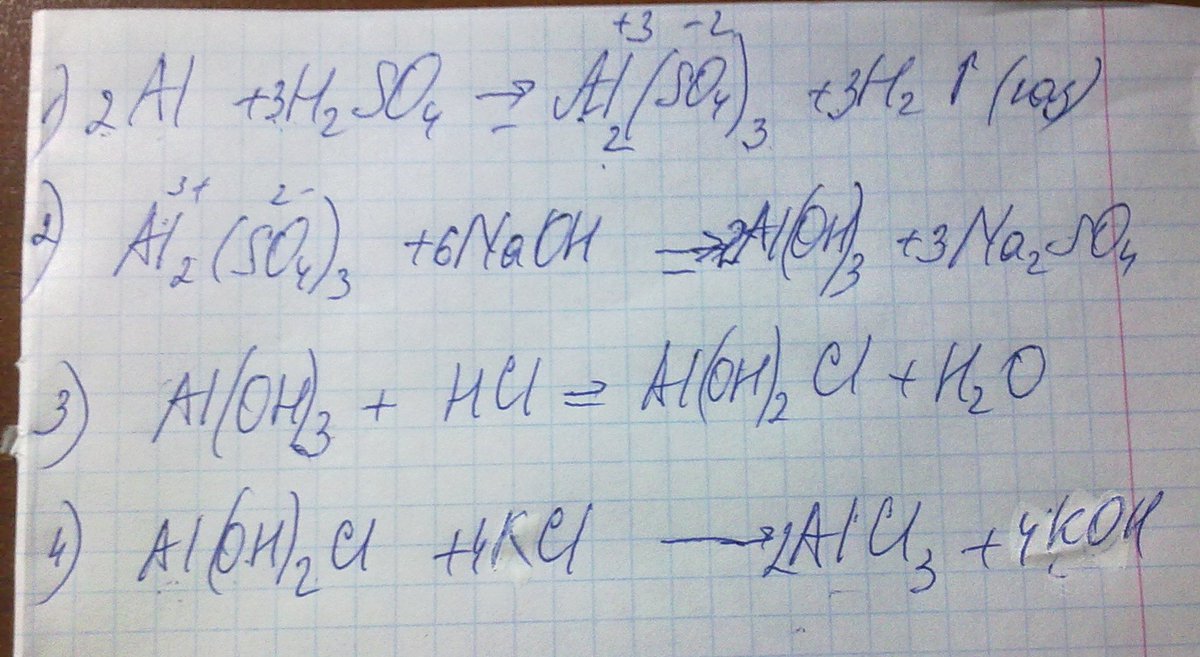 1) 2Al + 3H₂SO₄ → Al₂⁺³(SO₄)₃⁻² + 3H₂↑ (газ)
2) Al₂³⁺(SO₄)₃²⁻ + 6NaOH → 2Al(OH)₃ + 3Na₂SO₄
3) Al(OH)₃ + HCl = Al(OH)₂Cl + H₂O
4) Al(OH)₂Cl + 4KCl → 2AlCl₃ + 4KOH